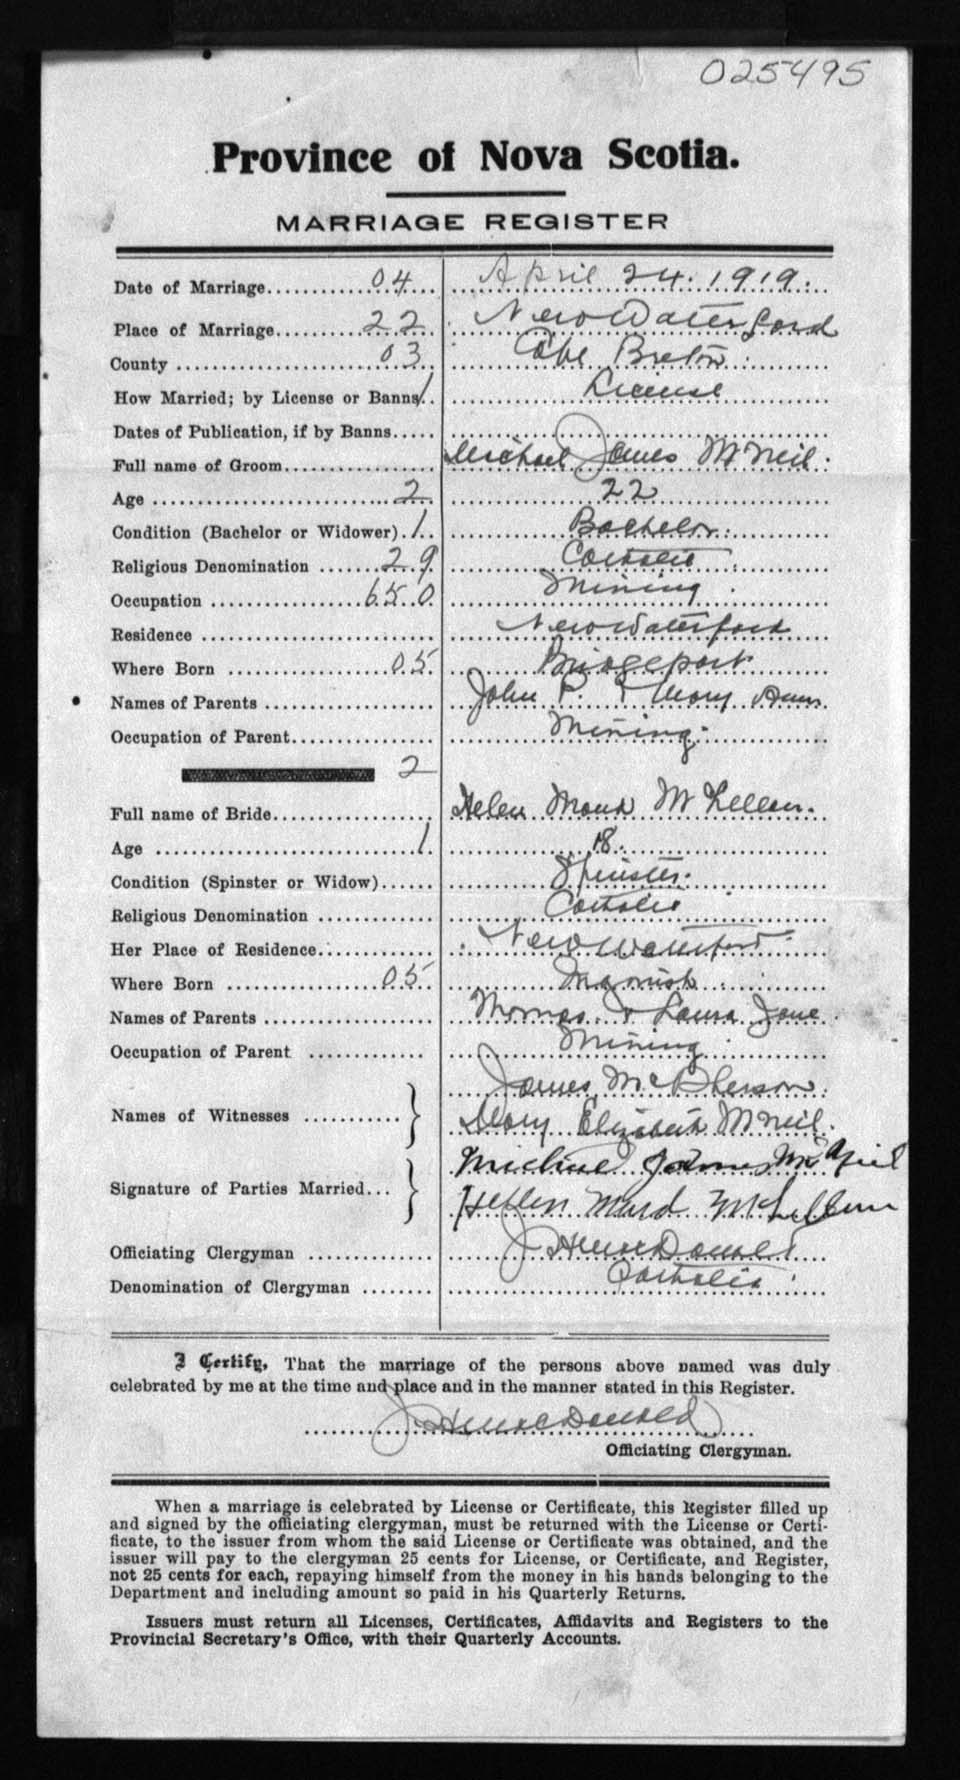 025495
Province of Nova Scotia.
MARRIAGE REGISTER
Date of Marriage 04 April 24. 1919.
Place of Marriage 22 New Waterford
County 03 Cape Breton
How Married; by License or Banns 1 License
Dates of Publication, if by Banns
Full name of Groom Michael James McNeil.
Age 2 22
Condition (Bachelor or Widower) 1 Bachelor.
Religious Denomination 29 Catholic
Occupation 650 Mining
Residence New Waterford
Where Born 05 Bridgeport
Names of Parents John P. & Mary Ann
Occupation of Parent Mining.
2
Full name of Bride Helen McLellan.
Age 1 18.
Condition (Spinster or Widow) Spinster.
Religious Denomination Catholic
Her Place of Residence New Waterford
Where Born 05 Ingonish
Names of Parents Thomas & Laura Jane
Occupation of Parent Mining
James McPherson.
Names of Witnesses
Mary Elizabeth McNeil.
Michael James McNeil
Signature of Parties Married
McLellan
Officiating Clergyman J H MacDonald
Denomination of Clergyman Catholic
I Certify, That the marriage of the persons above named was duly
celebrated by me at the time and place and in the manner stated in this Register.
J H MacDonald
Officiating Clergyman.
When a marriage is celebrated by License or Certificate, this Register filled up
and signed by the officiating clergyman, must be returned with the License or Certi-
ficate, to the issuer from whom the said License or Certificate was obtained, and the
issuer will pay to the clergyman 25 cents for License, or Certificate, and Register,
not 25 cents for each, repaying himself from the money in his hands belonging to the
Department and including amount so paid in his Quarterly Returns.
Issuers must return all Licenses, Certificates, Affidavits and Registers to the
Provincial Secretary's Office, with their Quarterly Accounts.